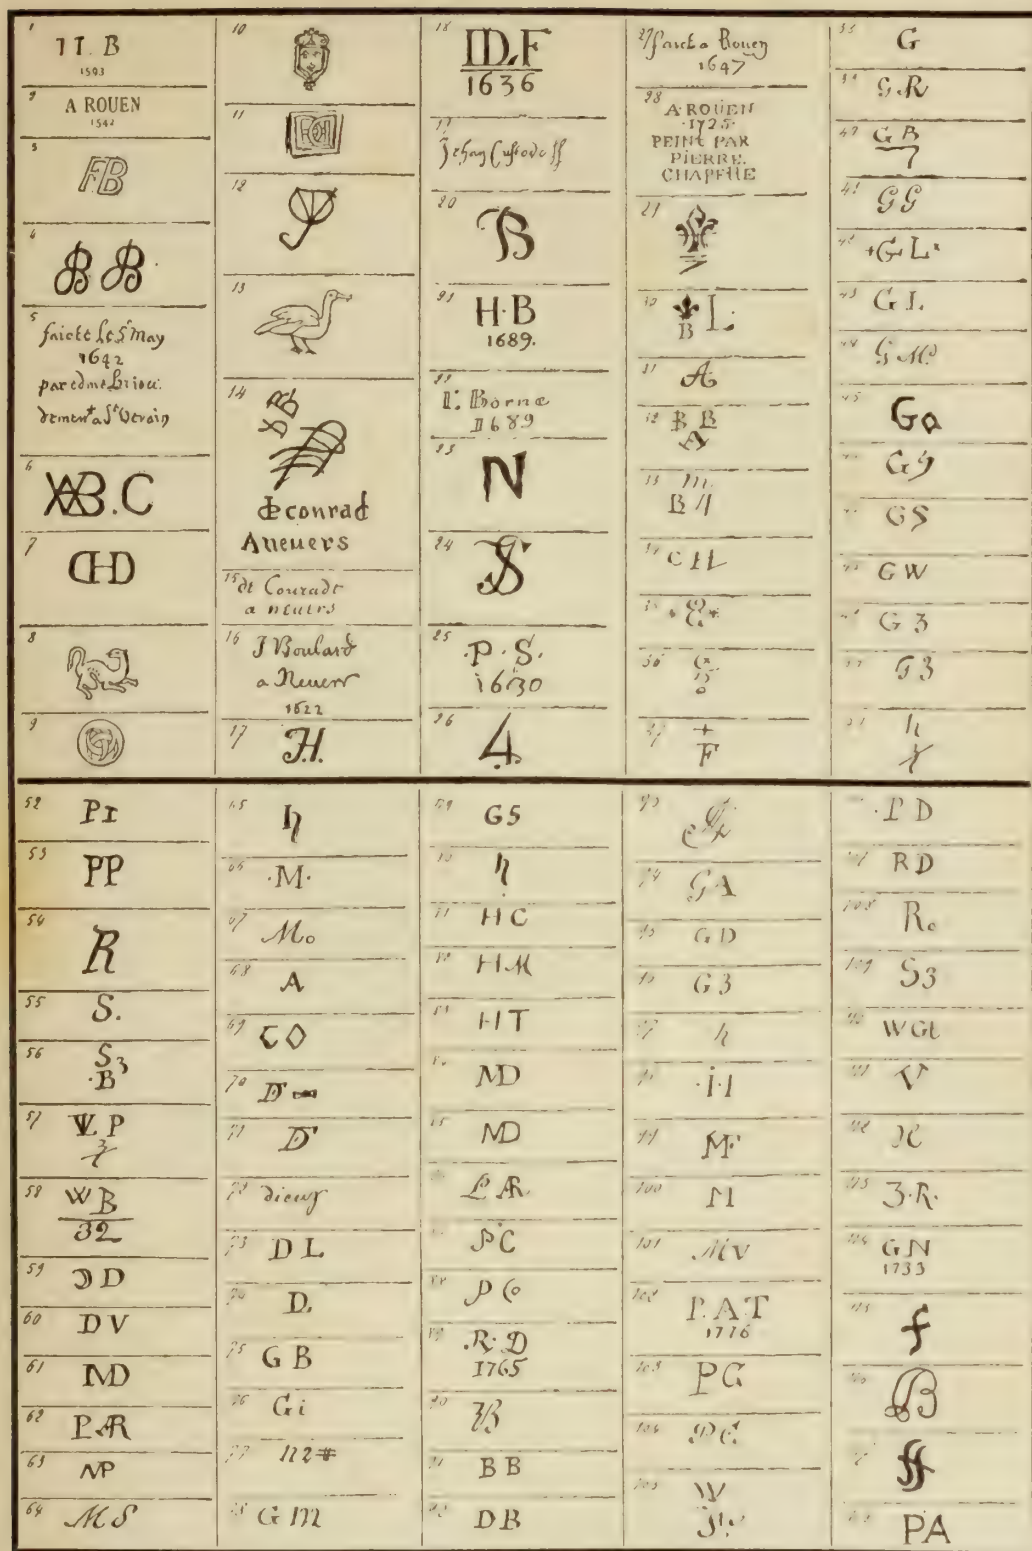 1
IT. B
1503
2
A ROUEN
1542
3
FB
4
B B
5
faicte le 5 May
1642
par edme briou
demeut a St Verain
6
AB.C
7
CHD
8
9
10
11
12
13
14
B
de conrad
Aneuers
15
de Couradt
a neuers
16
J Boulard
a Neuers
1622
17
H.
18
ID.F
1636
19
Jehan Custode ff
20
B
21
H.B
1689.
22
I: Borne
1689
23
N
24
S
25
.P.S.
1630
26
4
27
faict a Rouen
1647
28
A ROUEN
.1725.
PEINT PAR
PIERRE.
CHAPELLE
29
30
B L.
31
A
32
B B
A
33
m
B
34
C H
35
36
G
37
+
F
38
G
39
G.R
40
G B
7
41
G G
42
+G L
43
G L
44
G M
45
Go
46
G
47
G S
48
G W
49
G 3
50
G 3
51
h
52
PI
53
PP
54
R
55
S.
56
S3
.B
57
P
58
W B
32
59
D
60
D V
61
MD
62
P.AR
63
NP
64
M S
65
h
66
.M.
67
Mo
68
A
69
70
D
71
D
72
dieux
73
D L
74
D.
75
G B
76
G i
77
n 2 #
78
G m
79
G S
80
h
81
H C
82
H M
83
H T
84
MD
85
MD
86
P AR
87
P C
88
P Co
89
.R.D
1765
90
B
91
B B
92
D B
93
94
G A
95
G D
96
G 3
97
h
98
.i.I
99
M
100
M
101
M V
102
P. A T
1776
103
P G
104
P C
105
W
106
.P D
107
R D
108
Ro
109
S 3
110
W Gt
111
V
112
113
3.R.
114
G N
1733
115
f
116
B
117
ff
118
PA